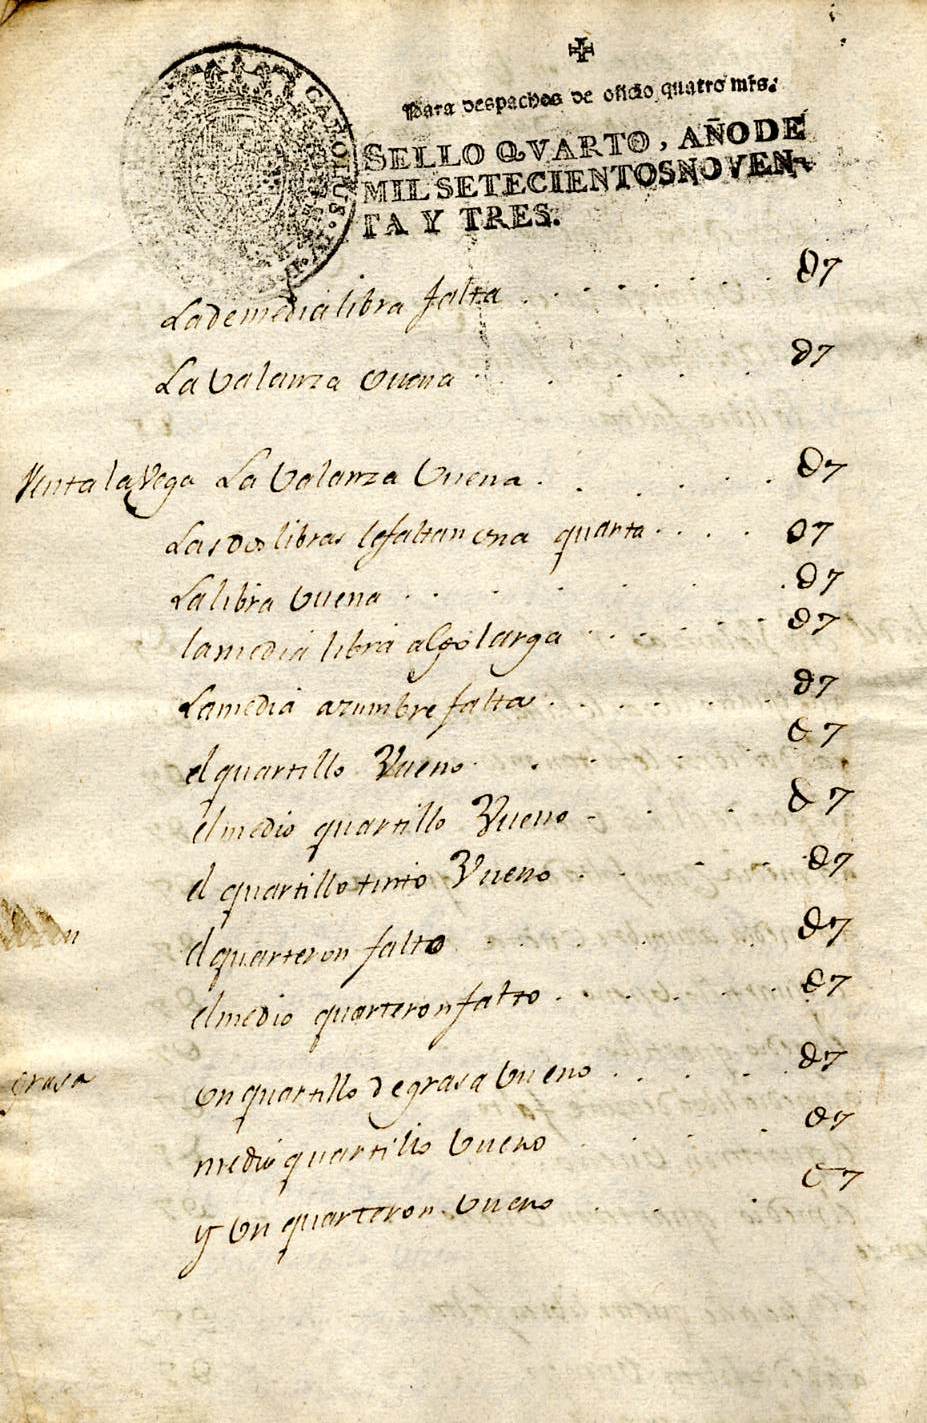 Para despachos de oficio quatro mrs.
SELLO QVARTO, AÑO DE
MIL SETECIENTOS NOVEN
TA Y TRES.
CAROLUS
La de media libra falta . . . . . . . 87
La Valanza Vuena . . . . . 87
Venta la Vega La Valanza Vuena . . . . . . 87
Las dos libras le faltan una quarta . . . . 87
La libra Vuena . . . . . . 87
la media libra algo larga . . . . . 87
La media azumbre falta . . . . . 87
el quartillo Vueno . . . . . 87
el medio quartillo Vueno - . . . 87
el quartillo tinto Vueno . . . . . 87
el quarteron falto . . . . . 87
el medio quarteron falto . . . . . 87
grasa Un quartillo de grasa Vueno . . . . . 87
medio quartillo Vueno . . . . . 87
y Un quarteron Vueno . . . . 87